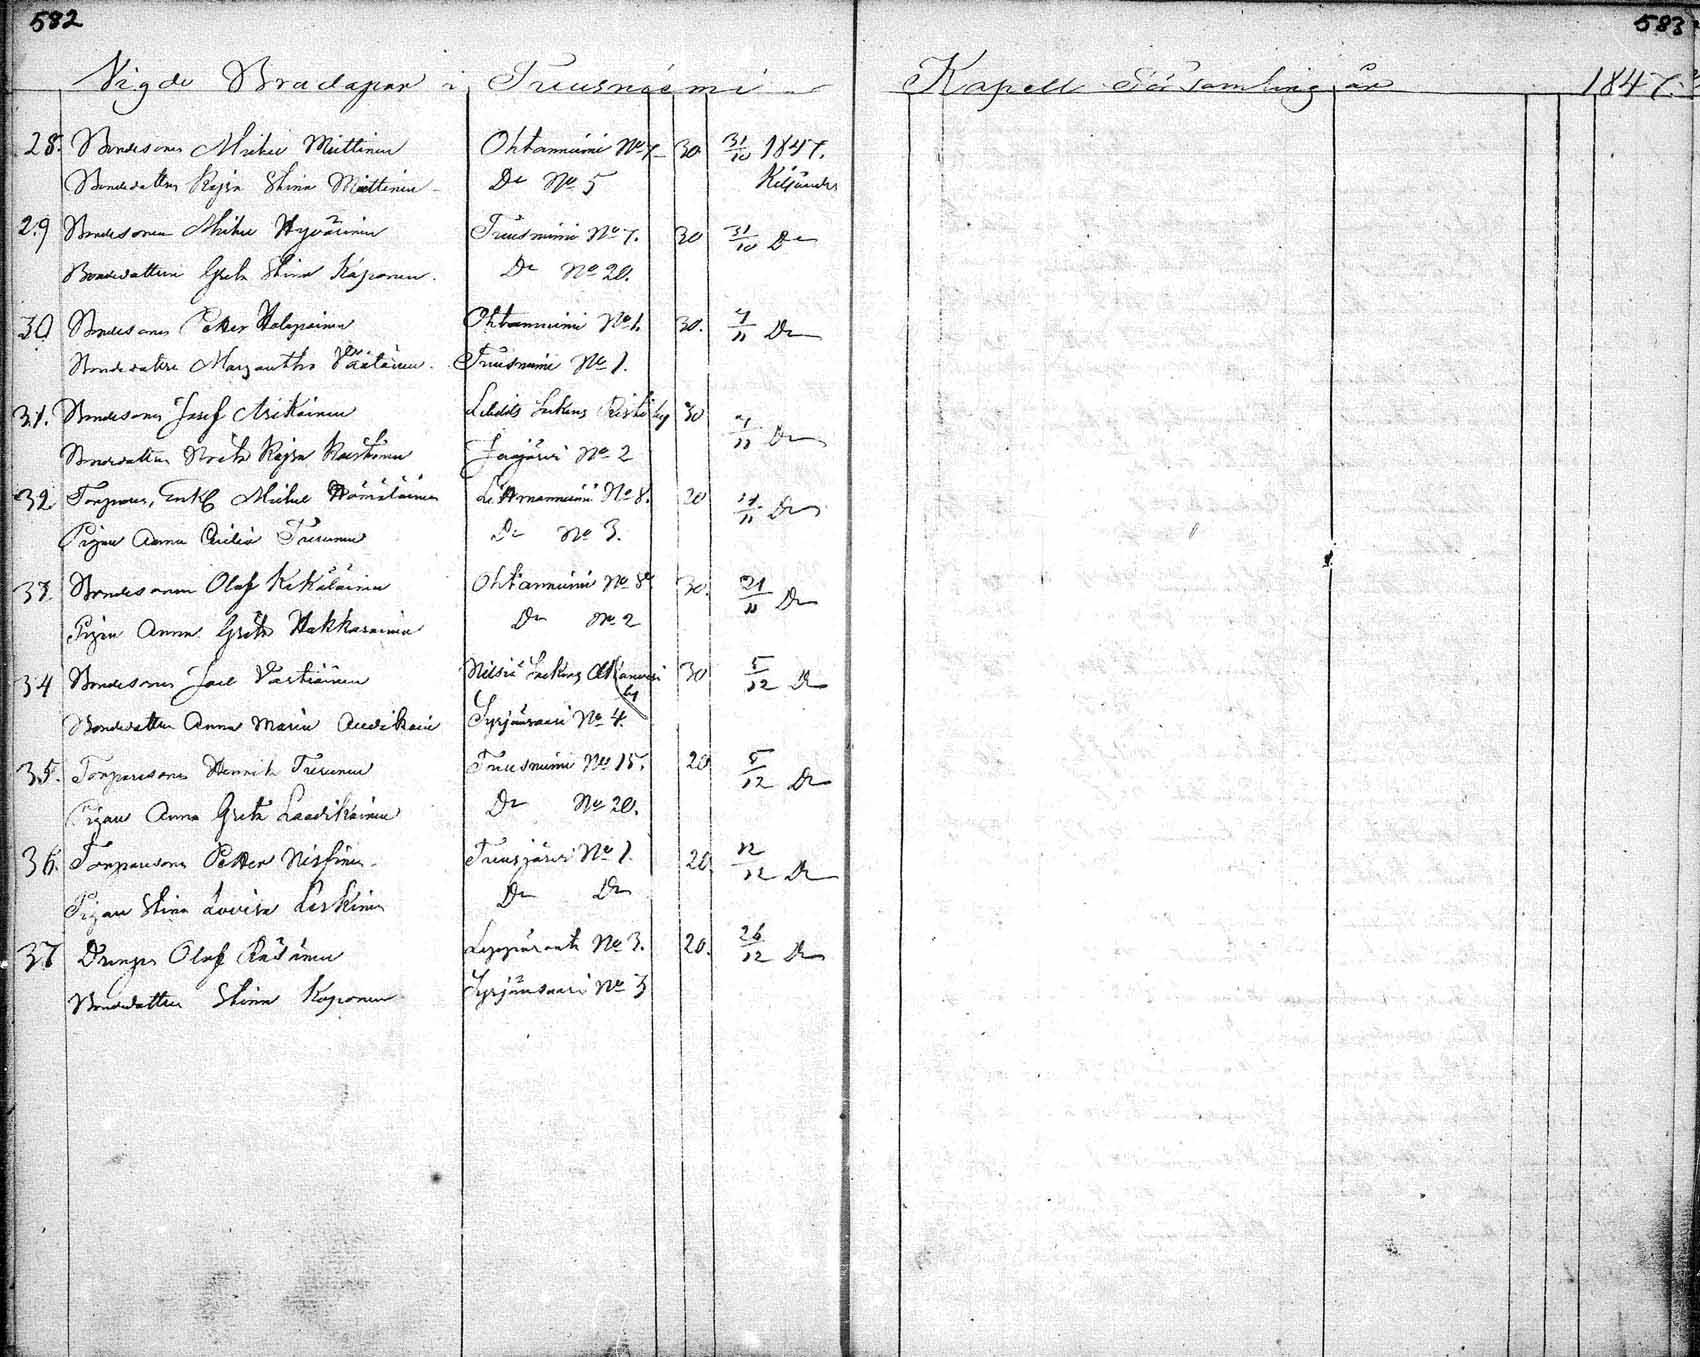 582
583
Vigde Brudapar i Tuusniemi
Kapell Församling år 1847.
28. Bondesonen Mikel Miettinen Ohtanniemi No 7 30 31/10 1847.
Bondedottren Kajsa Stina Miettinen Do No 5 Kiljander
29 Bondesonen Mikel Hyvärinen Tuusniemi No 7. 30 31/10 Do
Bondedottren Greta Stina Kaponen. Do No 20.
30 Bondesonen Petter Halopainen Ohtanniemi No 1. 30. 7/11 Do
Bondedottren Margaretha Väätäinen. Tuusniemi No 1.
31. Bondesonen Josef Asikainen Libelits Sockens Risti by 30 7/11 Do
Bondedottren Kajsa Juojärvi No 2
32 Torparen, Enkl Mikel Hämäläinen No 8. 20 /11 Do
Pigan Anna Cecilia Turunen Do No 3.
33. Bondesonen Olof Kekäläinen Ohtanniemi No 8 30. 21/11 Do
Pigan Anna Greta Hakkarainen Do No 2
34 Bondesonen Joel Vartiainen Nilsiä Sockens by 30 5/12 Do
Bondedottren Anna Maria Syrjänsaari No 4.
35. Torparesonen Henrik Turunen Tuusniemi No 15. 20 5/12 Do
Pigan Anna Greta Laadikainen Do No 20.
36. Torparesonen Petter Nissinen Tuusjärvi No 1. 20. 12/12 Do
Pigan Stina Lovisa Leskinen Do Do
37 Drängen Olof Räsänen No 3. 20. 26/12 Do
Bondedottren Stina Kaponen Syrjänsaari No 3